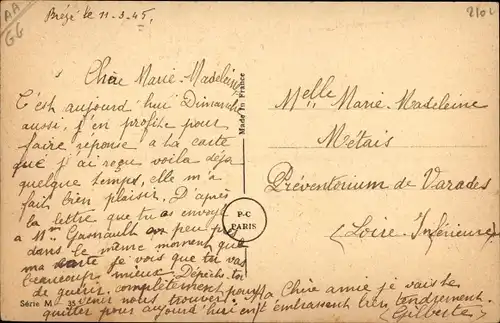 AA
GG
2101
Brézé le 11-3-45.
Chère Marie-Madeleine
C'est aujourd'hui Dimanche
aussi, j'en profite pour
faire réponse à ta carte
que j'ai reçu voila déjà
quelque temps, elle m'a
fait bien plaisir. D'après
la lettre que tu as envoyé
à Mme Gasnault un peu près
dans le même moment que
ma carte je vois que tu vas
beaucoup mieux. Dépêche-toi
de guérir complètement pour
venir nous trouver.
Ma Chère amie je vais te
quitter pour aujourd'hui en t'embrassant bien tendrement.
Gilberte
Made in France
P-C
PARIS
Série M 35
Melle Marie-Madeleine
Métais
Préventorium de Varades
(Loire-Inférieure)